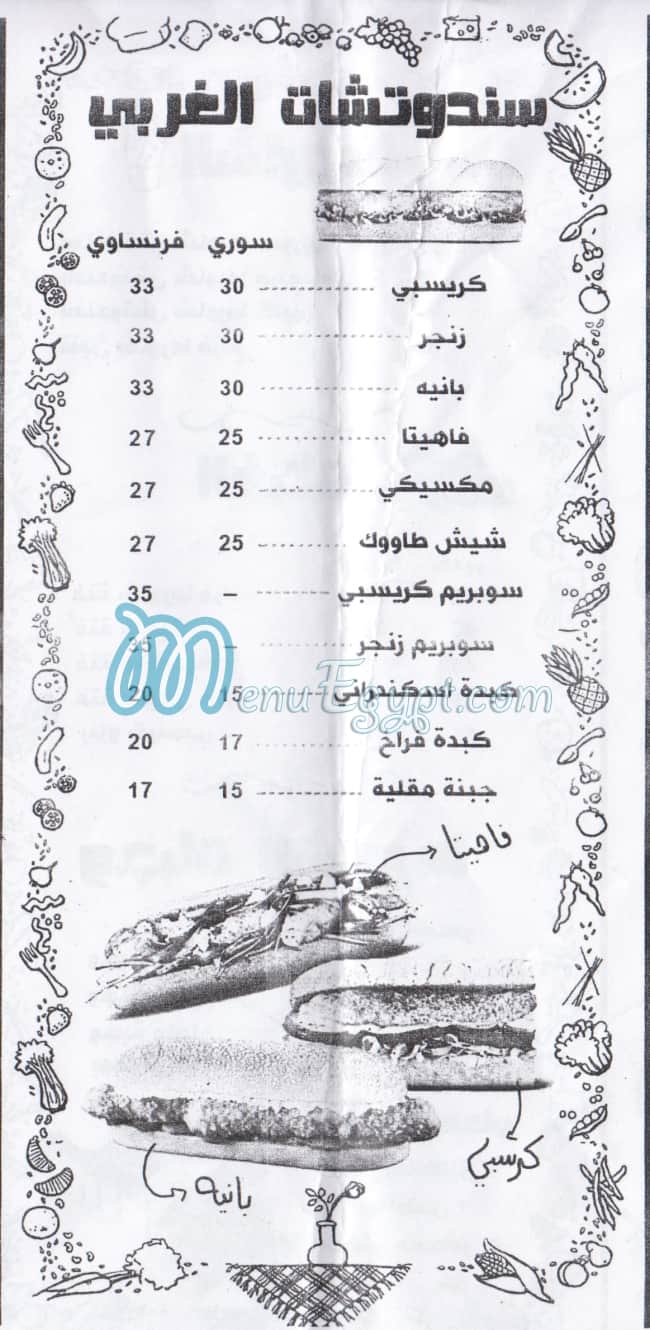 سندوتشات الغربي
سوري فرنساوي
كريسبي 30 33
زنجر 30 33
بانيه 30 33
فاهيتا 25 27
مكسيكي 25 27
شيش طاووك 25 27
سوبريم كريسبي – 35
سوبريم زنجر – 35
MenuEgypt.com
كبدة اسكندراني 15 20
كبدة فراخ 17 20
جبنة مقلية 15 17
فاهيتا
كرسبي
بانيه